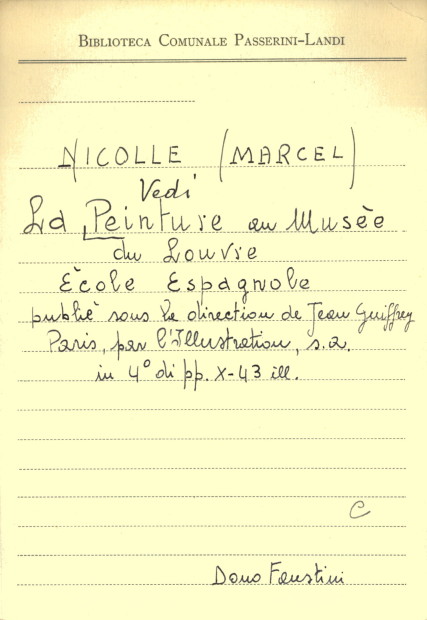 BIBLIOTECA COMUNALE PASSERINI-LANDI
NICOLLE (MARCEL)
Vedi
La Peinture au Musèe
du Louvre
Ècole Espagnole
publiè sous la direction de Jean Guiffrey
Paris, par l'Illustration, s.a.
in 4° di pp. X-43 ill.
C
Dono Faustini